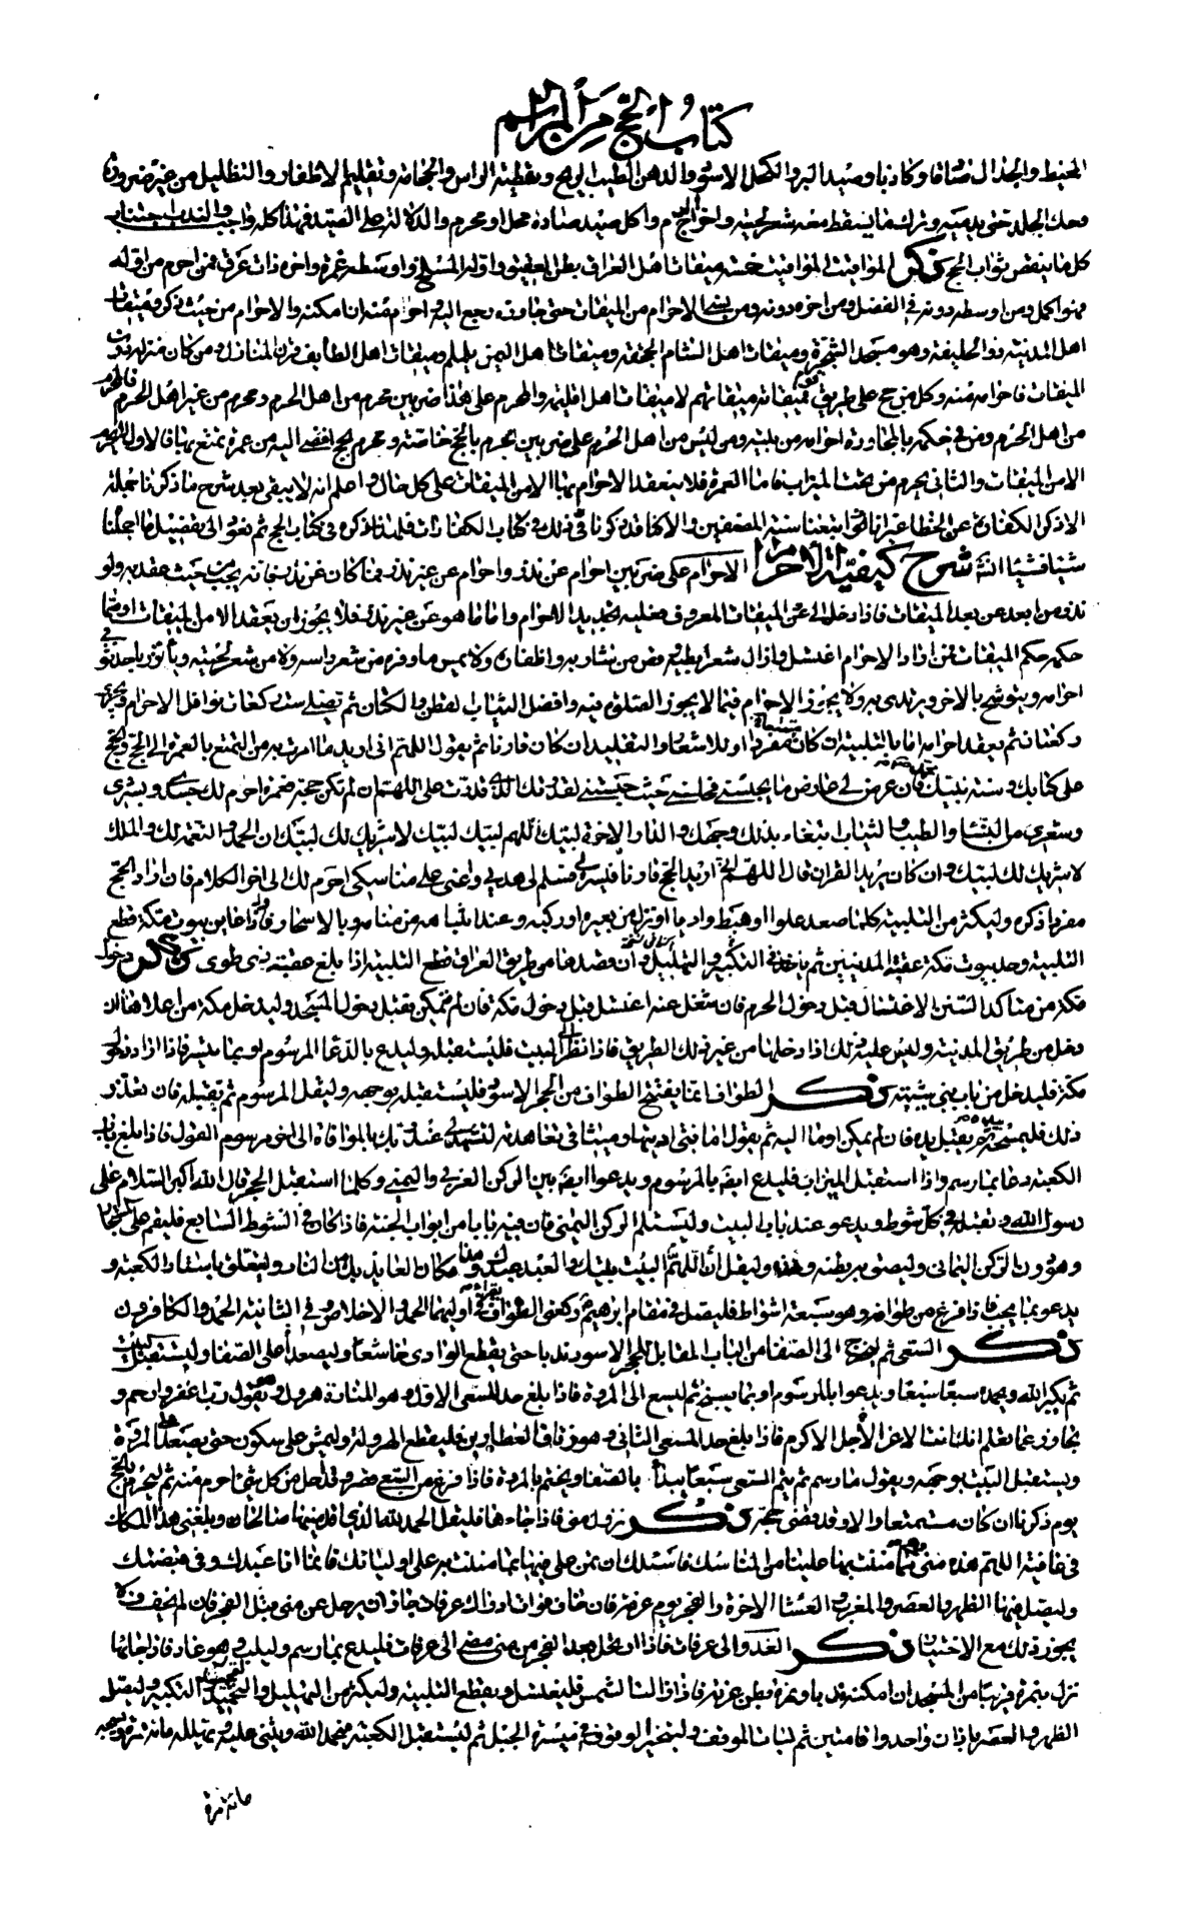 كتاب الحج من المراسم
المخيط والجدال صادقا وكاذبا وصيد البر والكحل الاسود والدهن الطيب الريح وتغطية الراس والحجامة وتقليم الاظفار والتظليل من غير ضرورة
وحك الجلد حتى يدميه وترك ما يسقط معه شعر لحيته واخراج الدم واكل صيد صاده محل او محرم والدلالة على الصيد فهذا كله واجب والندب اجتناب
كل ما ينقص ثواب الحج ذكر المواقيت المواقيت خمسة ميقات اهل العراق بطن العقيق واوله المسلخ واوسطه غمرة واخره ذات عرق فمن احرم من اوله
فهو اكمل ومن اوسطه دونه في الفضل ومن اخره دونه ومن نسى الاحرام من الميقات حتى جاوزه رجع اليه واحرم منه ان امكنه والا احرم من حيث ذكر وميقات
اهل المدينة ذو الحليفة وهو مسجد الشجرة وميقات اهل الشام الجحفة وميقات اهل اليمن يلملم وميقات اهل الطايف قرن المنازل ومن كان منزله دون
الميقات فاحرامه منه وكل من حج على طريق قوم فميقاته ميقاتهم لا ميقات اهل اقليمه والمحرم على هذا ضربين محرم من اهل الحرم ومحرم من غير اهل الحرم فالمحرم
من اهل الحرم ومن في حكمه بالمجاورة احرامه من بيته ومن ليس من اهل الحرم على ضربين محرم بالحج خاصة ومحرم بحج افضى اليه من عمرة تمتع بها فالاول لا يحرم
الا من الميقات والثاني يحرم من تحت الميزاب فاما العمرة فلا ينعقد الاحرام بها الا من الميقات على كل حال واعلم انه لا يبقى بعد شرح ما ذكرنا جملته
الا ذكر الكفارة عن الخطا غير انا اتبعنا سنة المصنفين والا كنا قد ذكرنا ذلك في كتاب الكفارات فلهذا ذكره في كتاب الحج ثم نعود الى تفصيل ما اجملنا
شيئا فشيئا ان شاء الله شرح كيفية الاحرام الاحرام على ضربين احرام عن نذر واحرام عن غير نذر فما كان عن نذر فانه يجب من حيث عقد به ولو
نذر من ابعد عن بعد الميقات فاذا دخل الى الميقات المعروف فعليه تجديد الاحرام واما ما هو عن غير نذر فلا يجوز ان يعقد الا من الميقات او مما
حكمه حكم الميقات فمن اراد الاحرام اغتسل وازال شعر ابطيه وقص من شاربه واظفاره ولا يمس ما وفر من شعر راسه ولا من شعر لحيته وياتزر باحد ثوبي
احرامه ويتوشح بالاخر ويرتدى به ولا يجوز الاحرام فيما لا يجوز الصلوة فيه وافضل الثياب القطن والكتان ثم تصلى ست ركعات نوافل الاحرام ويجزى
ركعتان ثم يعقد احرامه اما بالتلبية ان كان متمتعا او مفردا او بالاشعار والتقليد ان كان قارنا ثم يقول اللهم انى اريد ما امرت به من التمتع بالعمرة الى الحج
على كتابك وسنة نبيك فان عرض لي عارض ما يحبسني فحلني حيث حبستني لقدرك الذى قدرت على اللهم ان لم تكن حجة فعمرة احرم لك جسدى وبشرى
وشعرى من النساء والطيب والثياب ابتغاء بذلك وجهك والدار الاخرة لبيك اللهم لبيك لبيك لا شريك لك لبيك ان الحمد والنعمة لك والملك
لا شريك لك لبيك وان كان يريد القران قال اللهم اني اريد الحج قارنا فيسر لي وسلم لي هديي واعني على مناسكى احرم لك الى اخر الكلام فان اراد الحج
مفردا ذكره وليكثر من التلبية كلما صعد علوا او هبط واديا او نزل من بعيره او ركبه وعند قيامه من منامه وبالاسحار فاذا عاين بيوت مكة قطع
التلبية وحد بيوت مكة عقبة المدنيين ثم ياخذ في التكبير والتهليل وان قصدها من طريق العراق قطع التلبية اذا بلغ عقبة ذى طوى ذكر دخول
مكة من متاكد السنن الاغتسال قبل دخول الحرم فان شغل عنه اغتسل قبل دخول مكة فان لم يتمكن فقبل دخول المسجد وليدخل مكة من اعلاها ان
دخل من طريق المدينة وليس عليه ذلك اذا دخلها من غير ذلك الطريق فاذا نظر الى البيت فليستقبله وليدع بالدعا المرسوم او بما تيسر فاذا اراد دخول
مكة فليدخل من باب بنى شيبة ذكر الطواف انما يفتتح الطواف من الحجر الاسود فليستقبله بوجهه وليقل المرسوم ثم يقبله فان تعذر
ذلك فليمسحه بيده ثم يقبل يده فان لم يمكن اوما اليه ثم يقول امانتى اديتها وميثاقى تعاهدته لتشهد لي عند ربك بالموافاة الى اخر مرسوم القول فاذا بلغ باب
الكعبة دعا بما رسم واذا استقبل الميزاب فليدع ايضا بالمرسوم ويدعوا ايضا بين الركن الغربى واليمنى وكلما استقبل الحجر قال الله اكبر السلام على
رسول الله ويقبله في كل شوط ويدعو عند باب البيت وليستلم الركن اليمانى فان فيه بابا من ابواب الجنة فاذا كان في الشوط السابع فليقم على المستجار
وهو دون الركن اليمانى وليلصق به بطنه وخده وليقل اللهم البيت بيتك والعبد عبدك وهذا مكان العائذ بك من النار وليتعلق باستار الكعبة و
يدعو بما يجب فاذا فرغ من طوافه وهو سبعة اشواط فليصل في مقام ابرهيم ركعتى الطواف يقرا في اوليهما الحمد والاخلاص وفي الثانية الحمد والكافرون
ذكر السعى ثم ليخرج الى الصفا من الباب المقابل للحجر الاسود ندبا حتى يقطع الوادى خاشعا وليصعد اعلى الصفا وليستقبل البيت
ثم يكبر الله ويحمده سبعا سبعا ويدعوا بالمرسوم او بما يسنح ثم ليسع الى المروة فاذا بلغ حد المسعى الاول وهو المنارة هرول وهو يقول رب اغفر وارحم و
تجاوز عما تعلم انك انت الاعز الاجل الاكرم فاذا بلغ حد المسعى الثانى وهو زقاق العطارين فليقطع الهرولة وليمش على سكون حتى يصعد على المروة
ويستقبل البيت بوجهه ويقول ما رسم ثم يتم السعى سبعا يبدا بالصفا ويختم بالمروة فاذا فرغ من السعى قصر وقد احل من كل شئ احرم منه ثم ليحرم بالحج
يوم ذكرنا ان كان متمتعا والا وقد قضى حجه ذكر نزول منى فاذا جاءها فليقل الحمد لله الذي اقدمنيها صالحا وبلغنى هذا المكان
في عافية اللهم هذه منى وهى مما مننت بها علينا من المناسك فاسئلك ان تمن على فيها بما مننت به على اوليائك فانما انا عبدك وفي قبضتك
وليصل فيها الظهر والعصر والمغرب والعشاء الاخرة والفجر يوم عرفة فان خاف فوات ادراك عرفات جاز ان يرحل عن منى قبل الفجر فان لم يخف فلا
يجوز ذلك مع الاختيار ذكر الغدو الى عرفات فاذا ارتحل بعد الفجر من منى مضى الى عرفات فليدع بما رسم وليلب وهو غاد فاذا جاءها
نزل بنمرة قريبا من المسجد ان امكنه ندبا ونمرة بطن عرنة فاذا زالت الشمس فليغتسل ويقطع التلبية وليكثر من التهليل والتحميد والتكبير وليصل
الظهر والعصر باذان واحد واقامتين ثم ليات الموقف وليتخير الوقوف في ميسرة الجبل ثم ليستقبل الكعبة فيحمد الله ويثنى عليه ويهلله مائة مرة ويسبحه
مائة مرة